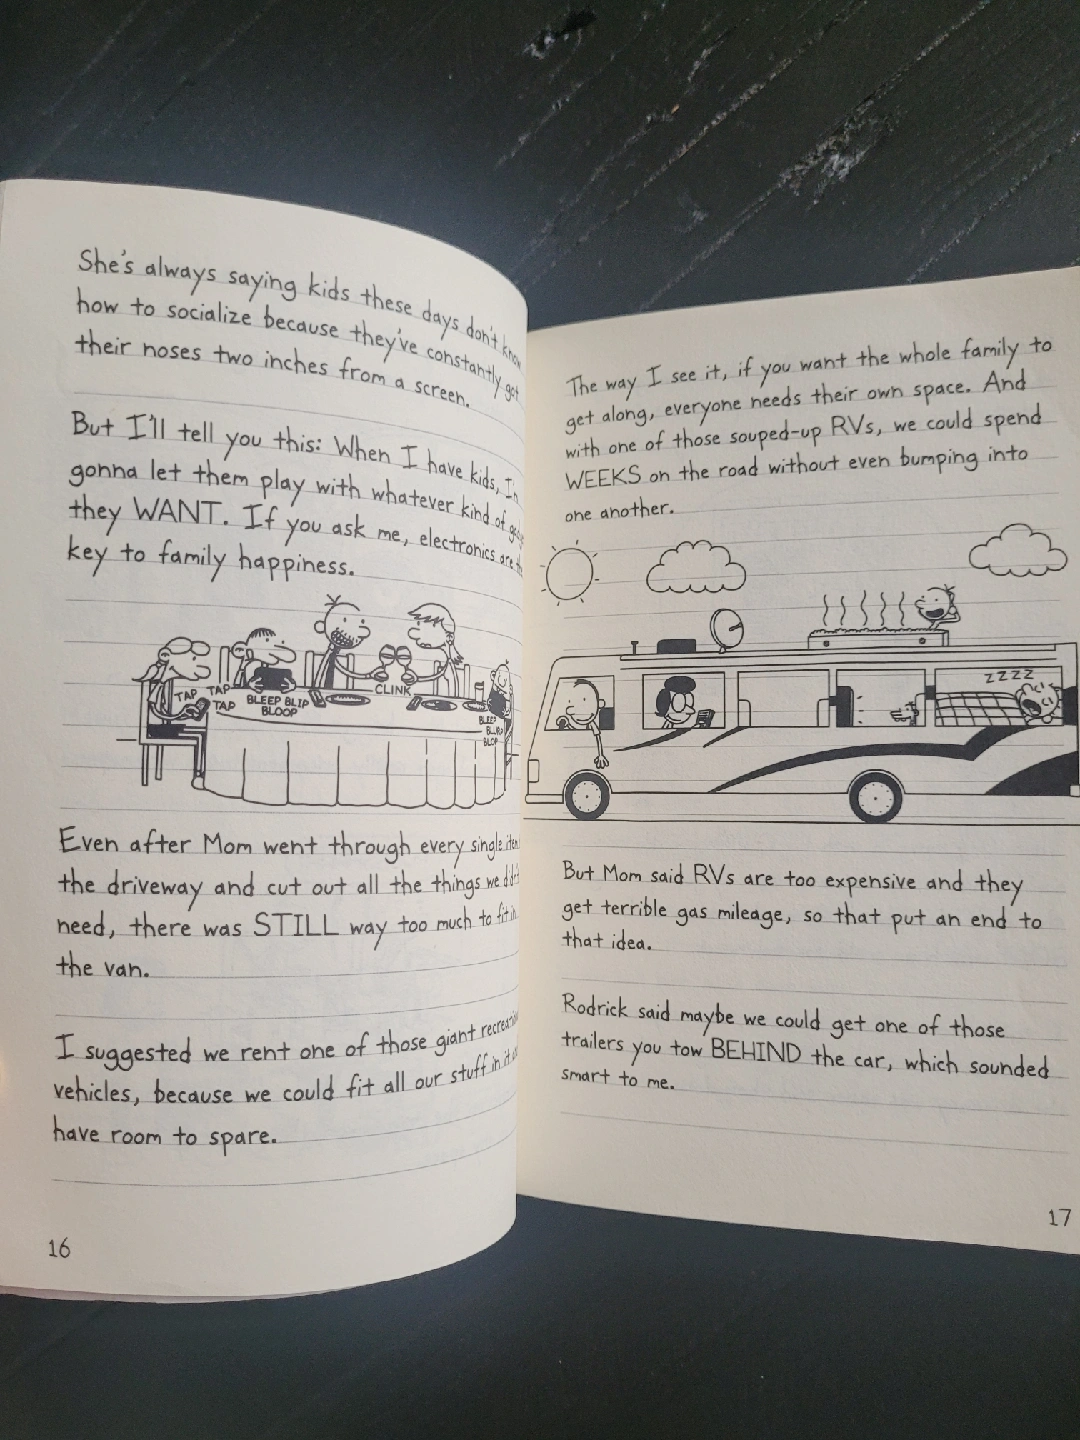 She's always saying kids these days don't know
how to socialize because they've constantly got
their noses two inches from a screen.
But I'll tell you this: When I have kids, I'm
gonna let them play with whatever kind of
they WANT. If you ask me, electronics are the
key to family happiness.
TAP TAP
TAP
BLEEP BLIP
BLOOP
CLINK
BLEEP
BLURP
BLOP
Even after Mom went through every single item
the driveway and cut out all the things we didn't
need, there was STILL way too much to fit in
the van.
I suggested we rent one of those giant
vehicles, because we could fit all our stuff in it
have room to spare.
16
The way I see it, if you want the whole family to
get along, everyone needs their own space. And
with one of those souped-up RVs, we could spend
WEEKS on the road without even bumping into
one another.
ZZZZ
But Mom said RVs are too expensive and they
get terrible gas mileage, so that put an end to
that idea.
Rodrick said maybe we could get one of those
trailers you tow BEHIND the car, which sounded
smart to me.
17